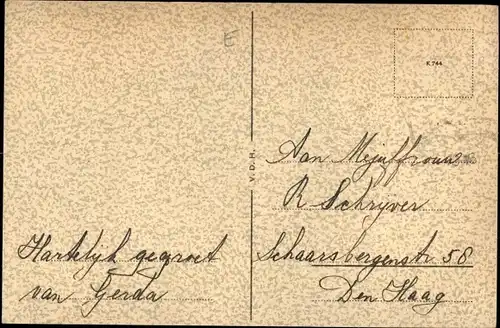 E
K 744
V. D. H.
Aan Mejuffrouw
R Schrijver
Schaarsbergenstr 58
Den Haag
Hartelijk gegroet
van Gerda